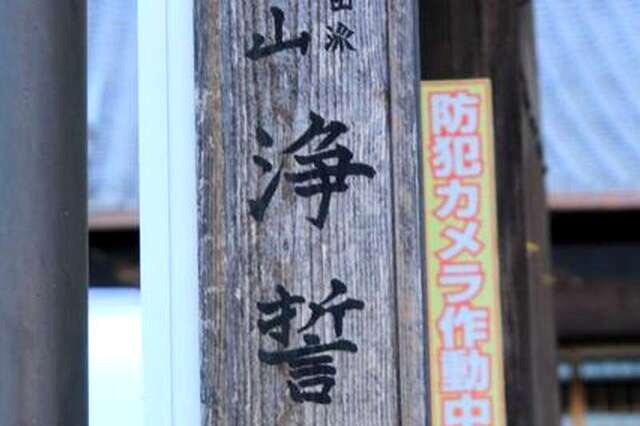 田派
山浄誓
防犯カメラ作動中